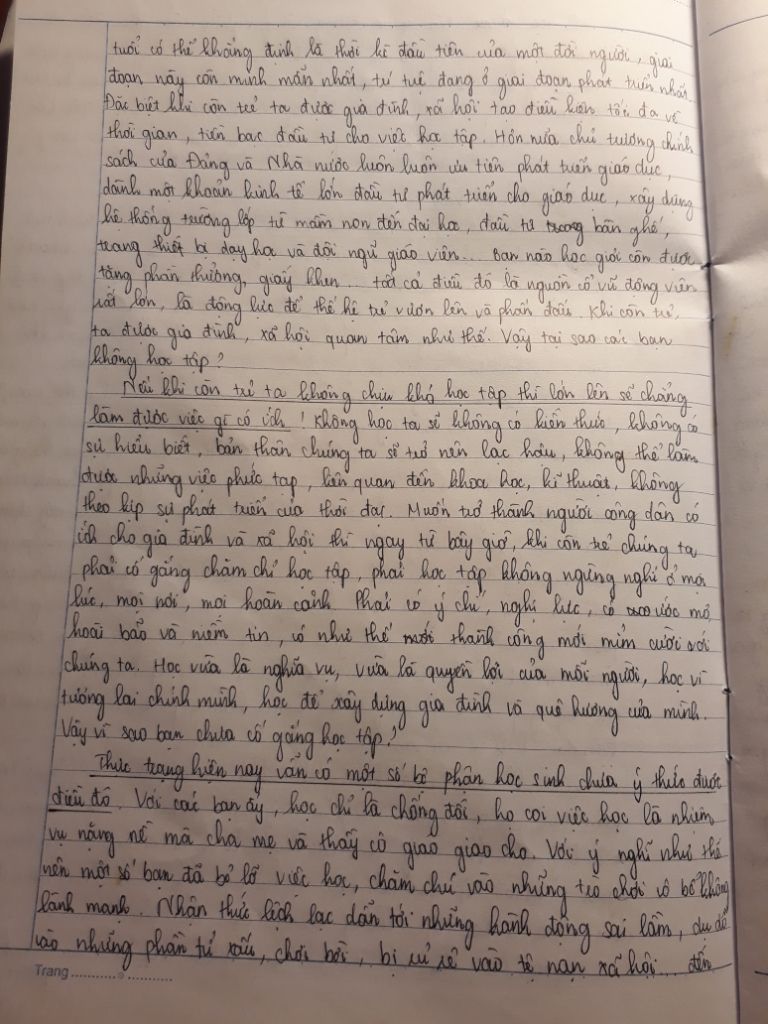 tuổi có thể khẳng định là thời kì đầu tiên của một đời người, giai
đoạn này còn minh mẫn nhất, trí tuệ đang ở giai đoạn phát triển nhất.
Đặc biệt khi còn trẻ ta được gia đình, xã hội tạo điều kiện tối đa về
thời gian, tiền bạc đầu tư cho việc học tập. Hơn nữa chủ trương chính
sách của Đảng và Nhà nước luôn luôn ưu tiên phát triển giáo dục,
dành một khoản kinh tế lớn đầu tư phát triển cho giáo dục, xây dựng
hệ thống trường lớp từ mầm non đến đại học, đầu tư bàn ghế,
trang thiết bị dạy học và đội ngũ giáo viên... Bạn nào học giỏi còn được
tặng phần thưởng, giấy khen... tất cả điều đó là nguồn cổ vũ động viên
rất lớn, là động lực để thế hệ trẻ vươn lên và phấn đấu. Khi còn trẻ,
ta được gia đình, xã hội quan tâm như thế. Vậy tại sao các bạn
không học tập?
Nếu khi còn trẻ ta không chịu khó học tập thì lớn lên sẽ chẳng
làm được việc gì có ích! Không học ta sẽ không có kiến thức, không có
sự hiểu biết, bản thân chúng ta sẽ trở nên lạc hậu, không thể làm
được những việc phức tạp, liên quan đến khoa học, kĩ thuật, không
theo kịp sự phát triển của thời đại. Muốn trở thành người công dân có
ích cho gia đình và xã hội thì ngay từ bây giờ, khi còn trẻ chúng ta
phải cố gắng chăm chỉ học tập, phải học tập không ngừng nghỉ ở mọi
lúc, mọi nơi, mọi hoàn cảnh. Phải có ý chí, nghị lực, có ước mơ
hoài bão và niềm tin, có như thế thành công mới mỉm cười với
chúng ta. Học vừa là nghĩa vụ, vừa là quyền lợi của mỗi người, học vì
tương lai chính mình, học để xây dựng gia đình và quê hương của mình.
Vậy vì sao bạn chưa cố gắng học tập?
Thực trạng hiện nay vẫn có một số bộ phận học sinh chưa ý thức được
điều đó. Với các bạn ấy, học chỉ là chống đối, họ coi việc học là nhiệm
vụ nặng nề mà cha mẹ và thầy cô giáo giao cho. Với ý nghĩ như thế
nên một số bạn đã bỏ lỡ việc học, chăm chú vào những trò chơi vô bổ không
lành mạnh. Nhận thức lệch lạc dẫn tới những hành động sai lầm, du đổ
vào những phần tử xấu, chơi bời, bị rủ rê vào tệ nạn xã hội... đến
Trang